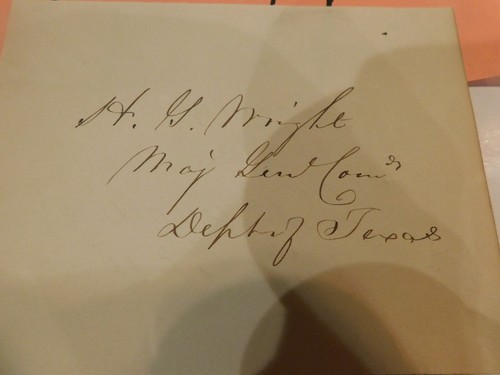 H. G. Wright
Maj Genl Comdr
Dept of Texas